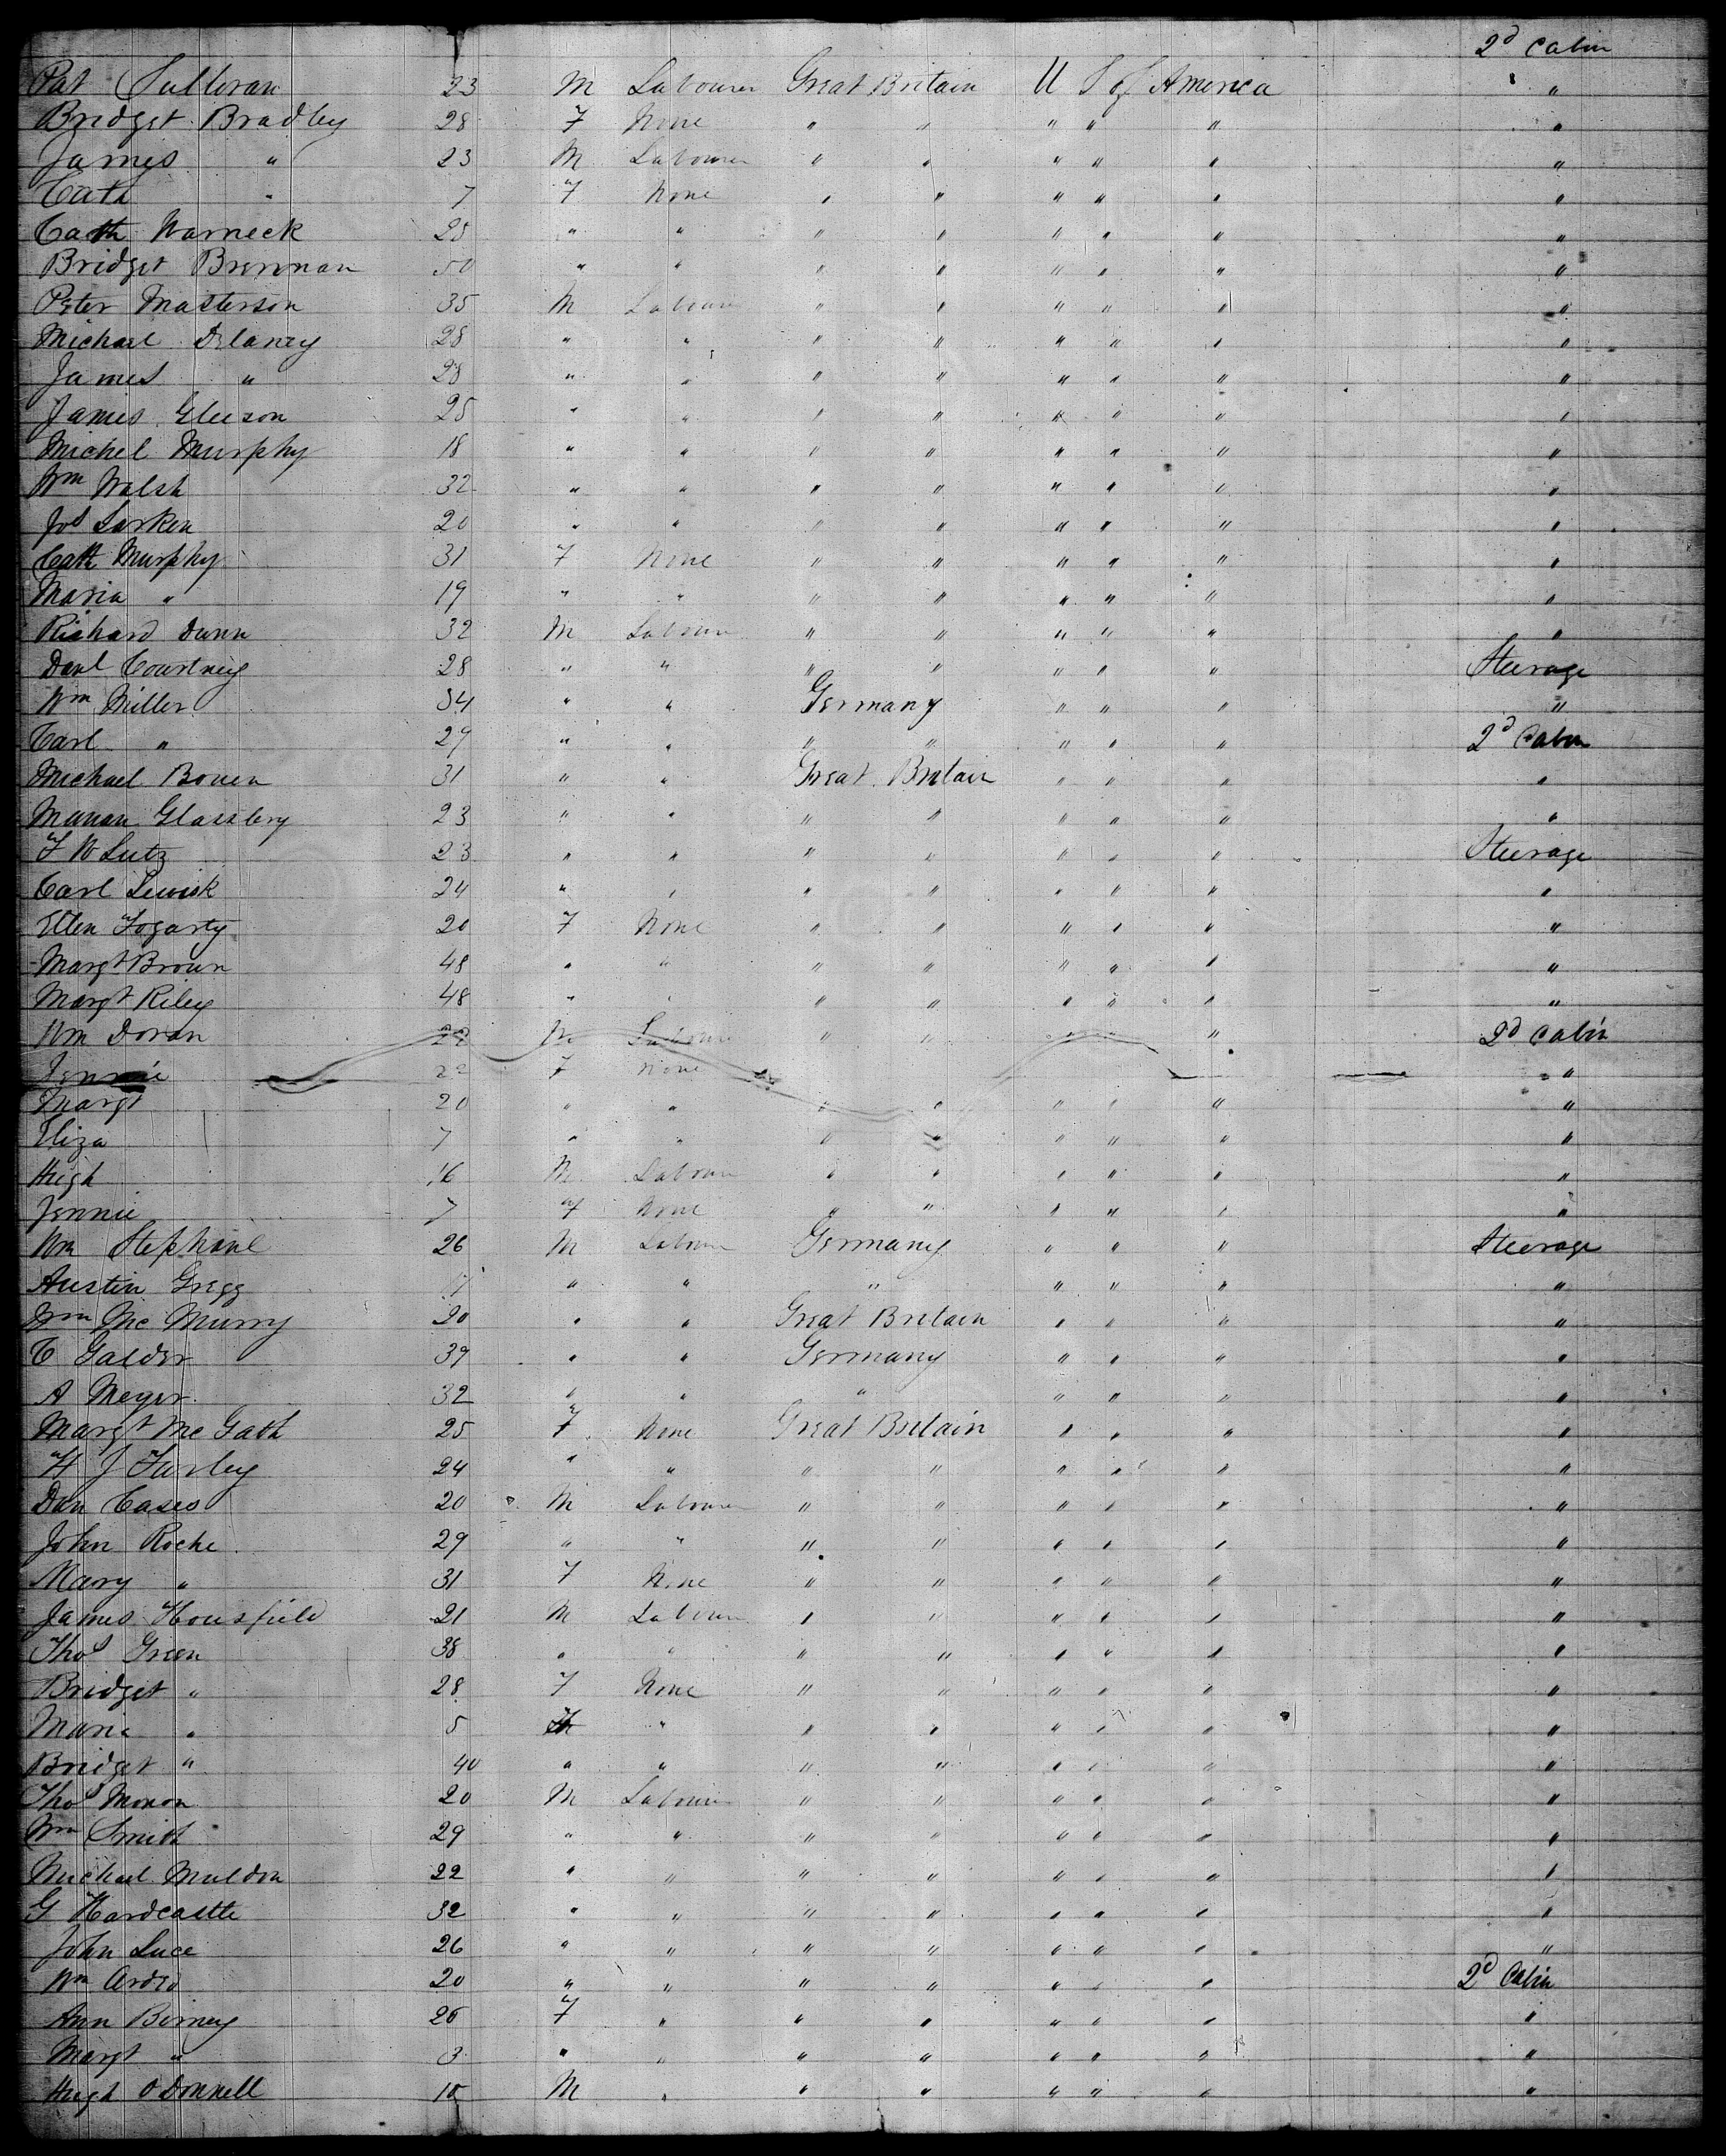 2d Cabin
Pat Sullivan 23 M Labourer Great Britain U S of America "
Bridget Bradley 28 F None " " " " " "
James " 23 M Labourer " " " " " "
Cath " 7 F None " " " " " "
Cath Warneck 25 " " " " " " " "
Bridget Brennan 50 " " " " " " " "
Peter Masterson 35 M Labourer " " " " " "
Michael Delaney 28 " " " " " " " "
James " 28 " " " " " " " "
James Gleeson 25 " " " " " " " "
Michel Murphy 18 " " " " " " " "
Wm Walsh 32 " " " " " " " "
Jos Larken 20 " " " " " " " "
Cath Murphy 31 F None " " " " " "
Maria " 19 " " " " " " " "
Richard Dunn 32 M Labourer " " " " " "
Danl Courtney 28 " " " " " " " Steerage
Wm Miller 34 " " Germany " " " "
Carl " 29 " " " " " " " 2d Cabin
Michael Bowen 31 " " Great Britain " " " "
Glassbery 23 " " " " " " " "
F W Lutz 23 " " " " " " " Steerage
Carl Lewisk 24 " " " " " " " "
Ellen Fogarty 20 F None " " " " " "
Margt Brown 48 " " " " " " " "
Margt Riley 48 " " " " " " " "
Wm Doran 22 M Labourer " " " " " 2d Cabin
Jennie 22 F None "
Margt 20 " " " " " " " "
Eliza 7 " " " " " " " "
Hugh 16 M Labourer " " " " " "
Jennie 7 F None " " " " " "
Wm Stephanl 26 M Labourer Germany " " " Steerage
Austin Gregg " " " " " " "
Wm Mc Murry 20 " " Great Britain " " " "
C Galder 39 " " Germany " " " "
A Meyer 32 " " " " " " "
Margt Mc Gath 25 F None Great Britain " " " "
H J Farley 24 " " " " " " " "
Dan Casey 20 M Labourer " " " " " "
John Roche 29 " " " " " " " "
Mary " 31 F None " " " " " "
James Housfield 21 M Labourer " " " " " "
Thos Green 38 " " " " " " " "
Bridget " 28 F None " " " " " "
Maria " 5 " " " " " " "
Bridget " 40 " " " " " " " "
Thos Moron 20 M Labourer " " " " " "
Wm Smith 29 " " " " " " " "
Michael Muldon 22 " " " " " " " "
G Hardcastle 32 " " " " " " " "
John Luce 26 " " " " " " " "
Wm 20 " " " " " " " 2d Cabin
Ann Birney 26 F " " " " " " "
Margt " 3 " " " " " " " "
Hugh O Donnell 10 M " " " " " " "